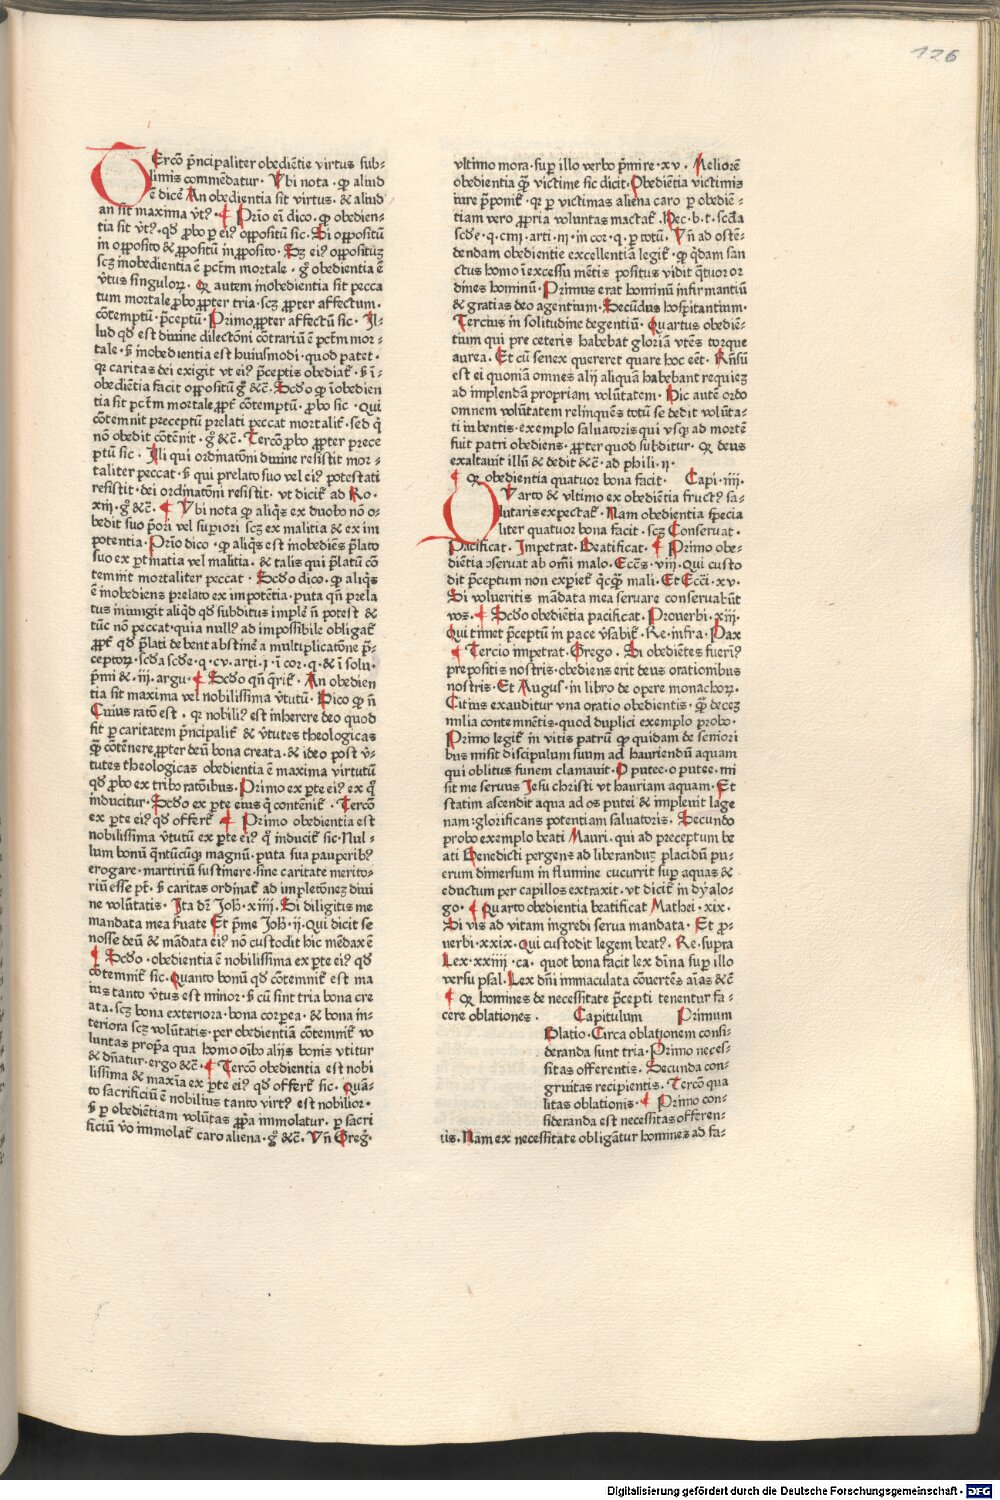 126
TErcō p̄ncipaliter obediētie virtus sub⸗
limis commēdatur · Vbi nota · ꝙ aliud
ē dicē An obedientia sit virtus · & aliud
an sit maxima v̄tꝰ · ¶ Prīo eī dico · ꝙ obedien⸗
tia sit v̄tꝰ · qd̄ ꝓbo ꝑ eiꝰ oppositū sic · Si oppositū
in opposito & ꝓpositū in ꝓposito · Sꝫ eiꝰ oppositūꝫ
scꝫ inobedientia ē pctm̄ mortale · gͦ obedientia ē
v̄tus singuloꝝ · Qꝛ autem inobedientia sit pecca
tum mortale ꝓbo ꝓpter tria · scꝫ ꝓpter affectum ·
cōtemptū · p̄ceptū · Primo ꝓpter affectū sic · Il⸗
lud qd̄ est diuine dilectōni cōtrariū ē pctm̄ mor⸗
tale · s̄ inobedientia est huiusmodi · quod patet ·
qꝛ caritas dei exigit vt eiꝰ p̄ceptis obediat̄ · s̄ ī⸗
obediētia facit oppositū gͦ &c̄ · Scd̄o ꝙ īobedien
tia sit pctm̄ mortale ꝓpt̄ cōtemptū · ꝓbo sic · Qui
cōtemnit preceptū prelati peccat mortalit̄ · sed q̄
nō obedit cōtēnit · gͦ &c̄ · Tercō ꝓbo ꝓpter prece
ptū sic · Illi qui ordinatōni diuine resistit mor⸗
taliter peccat · s̄ qui prelato suo vel eiꝰ potestati
resistit · dei ordinatōni resistit · vt dicit̄ ad Ro ·
xiij · gͦ &c̄ · ¶ Vbi nota ꝙ aliq̄s ex duobꝰ nō o⸗
bedit suo p̄ori vel supiori scꝫ ex malitia & ex im
potentia · Prīo dico · ꝙ aliq̄s est inobediēs p̄lato
suo ex ꝑtinatia vel malitia · & talis qui p̄latū cō
temnit mortaliter peccat · Scd̄o dico · ꝙ aliq̄s
ē inobediens prelato ex impotētia · puta qn̄ prela
tus iniungit aliqd̄ qd̄ subditus implē n̄ potest &
tūc nō peccat · quia nullꝰ ad impossibile obligat̄
ꝓpt̄ qd̄ p̄lati debent abstinē a multiplicatōne p̄⸗
ceptoꝝ · scd̄a scd̄e · q · cv · arti · j · ī cor · q · & ī solu ·
p̄mi & · iij · argu · ¶ Scd̄o qn̄ q̄rit̄ · An obedien
tia sit maxima vel nobilissima v̄tutū · Dico ꝙ n̄
Cuius ratō est · qꝛ nobiliꝰ est inherere deo quod
fit ꝑ caritatem p̄ncipalit̄ & v̄tutes theologicas
q̄ꝫ cōtēnere ꝓpter deū bona creata · & ideo post v̄⸗
tutes theologicas obedientia ē maxima virtutū
qd̄ ꝓbo ex tribꝰ ratōibus · Primo ex ꝑte eiꝰ ex q̄
inducitur · Scd̄o ex ꝑte eius q̄ contēnit̄ · Tercō
ex ꝑte eiꝰ qd̄ offert̄ ¶ Primo obedientia est
nobilissima v̄tutū ex ꝑte eiꝰ qͦ inducit̄ sic · Nul⸗
lum bonū q̄ntūcūqꝫ magnū · puta sua pauperibꝰ
erogare · martiriū sustinere · sine caritate merito⸗
riū esse pt̄ · s̄ caritas ordinat̄ ad impletōnez diui
ne volūtatis · Ita dr̄ Joh̄ · xiiij · Si diligitis me
mandata mea ẜuate Et p̄me Joh̄ · ij · Qui dicit se
nosse deū & mādata eiꝰ nō custodit hic mēdax ē
¶ Scd̄o · obedientia ē nobilissima ex ꝑte eiꝰ qd̄
cōtemnit̄ sic · Quanto bonū qd̄ cōtemnit̄ est ma
ius tanto v̄tus est minor · s̄ cū sint tria bona cre
ata · scꝫ bona exteriora · bona corꝑea · & bona in⸗
teriora scꝫ volūtatis · per obedientiā cōtemnit̄ vo
luntas propͥa qua homo oībꝰ alijs bonis vtitur
& dn̄atur · ergo &c̄ · ¶ Tercō obedientia est nobi
lissima & maxīa ex ꝑte eiꝰ qd̄ offert̄ sic · Quā⸗
to sacrificiū ē nobilius tanto virtꝰ est nobilior ·
s̄ ꝑ obediētiam volūtas ꝓpͥa immolatur · ꝑ sacri
ficiū v̄o immolat̄ caro aliena · gͦ &c̄ · Vn̄ Greg̓ ·
vltimo mora · suꝑ illo verbo p̄mi re · xv · Meliorē
obedientia q̄ꝫ victime sic dicit · Obediētia victimis
iure p̄ponit̄ · qꝛ ꝑ victimas aliena caro ꝑ obediē⸗
tiam vero ꝓpria voluntas mactat̄ · Hec · b · t · scd̄a
scd̄e · q · ciiij · arti · iij · in cor · q · ꝑ totū · Vn̄ ad ostē⸗
dendam obedientie excellentiā legit̄ · ꝙ q̄dam san
ctus homo ī excessu mētis positus vidit q̄tuor or
dines hominū · Primus erat hominū infirmantiū
& gratias deo agentium · Secūdus hospitantium ·
Tercius in solitudine degentiū · Quartus obediē⸗
tium qui pre ceteris habebat gloriā vtēs torque
aurea · Et cū senex quereret quare hoc eēt · Rn̄sū
est ei quoniā omnes alij aliquā habebant requiez
ad implendā propriam volūtatem · Hic autē ordo
omnem volūtatem relinquēs totū se dedit volūta⸗
ti iubentis · exemplo saluatoris qui vsqꝫ ad mortē
fuit patri obediens · ꝓpter quod subditur · Qꝛ deus
exaltauit illū & dedit &c̄ · ad phili · ij ·
¶ Qꝛ obedientia quatuor bona facit · Capi · iiij ·
QVarto & vltimo ex obediētia fructꝰ sa⸗
lutaris expectat̄ · Nam obedientia specia
liter quatuor bona facit · scꝫ Conseruat ·
Pacificat · Impetrat · Beatificat · ¶ Primo obe⸗
diētia ↄseruat ab om̄i malo · Ecc̄s · viij · Qui custo
dit p̄ceptum non exꝑiet̄ q̄cq̄ꝫ mali · Et Ecc̄i · xv ·
Si volueritis mādata mea seruare conseruabūt
vos · ¶ Scd̄o obediētia pacificat · Prouerbi · xiij ·
Qui timet p̄ceptū in pace v̓sabit̄ · Re · infra · Pax
¶ Tercio impetrat · Grego · Si obediētes fuerīꝰ
prepositis nostris · obediens erit deus orationibus
nostris · Et Augusͭ · in libro de opere monachoꝝ ·
Citius exauditur vna oratio obedientis · q̄ꝫ decez
milia contemnētis · quod duplici exemplo probo ·
Primo legit̄ in vitis patrū ꝙ quidam de seniori
bus misit discipulum suum ad hauriendū aquam
qui oblitus funem clamauit · O putee · o putee · mi
sit me seruus Jesu christi vt hauriam aquam · Et
statim ascendit aqua ad os putei & impleuit lage
nam : glorificans potentiam saluatoris · Secundo
probo exemplo beati Mauri · qui ad preceptum be
ati Benedicti pergens ad liberanduꝫ placidū pu⸗
erum dimersum in flumine cucurrit suꝑ aquas &
eductum per capillos extraxit · vt dicit̄ in dyalo⸗
go · ¶ Quarto obedientia beatificat Mathei · xix ·
Si vis ad vitam ingredi serua mandata · Et ꝓ⸗
uerbi · xxix · Qui custodit legem beatꝰ · Re · supra
Lex · xxiiij · ca · quot bona facit lex diīna suꝑ illo
versu psal · Lex dn̄i immaculata cōuertēs aīas &c̄
¶ Qꝛ homines de necessitate p̄cepti tenentur fa⸗
cere oblationes · Capitulum Primum
Oblatio · Circa oblationem consi⸗
deranda sunt tria · Primo neces⸗
sitas offerentis · Secunda con⸗
gruitas recipientis · Tercō qua
litas oblationis · ¶ Primo con⸗
sideranda est necessitas offeren⸗
tis · Nam ex necessitate obligātur homines ad fa⸗
Digitalisierung gefördert durch die Deutsche Forschungsgemeinschaft · DFG